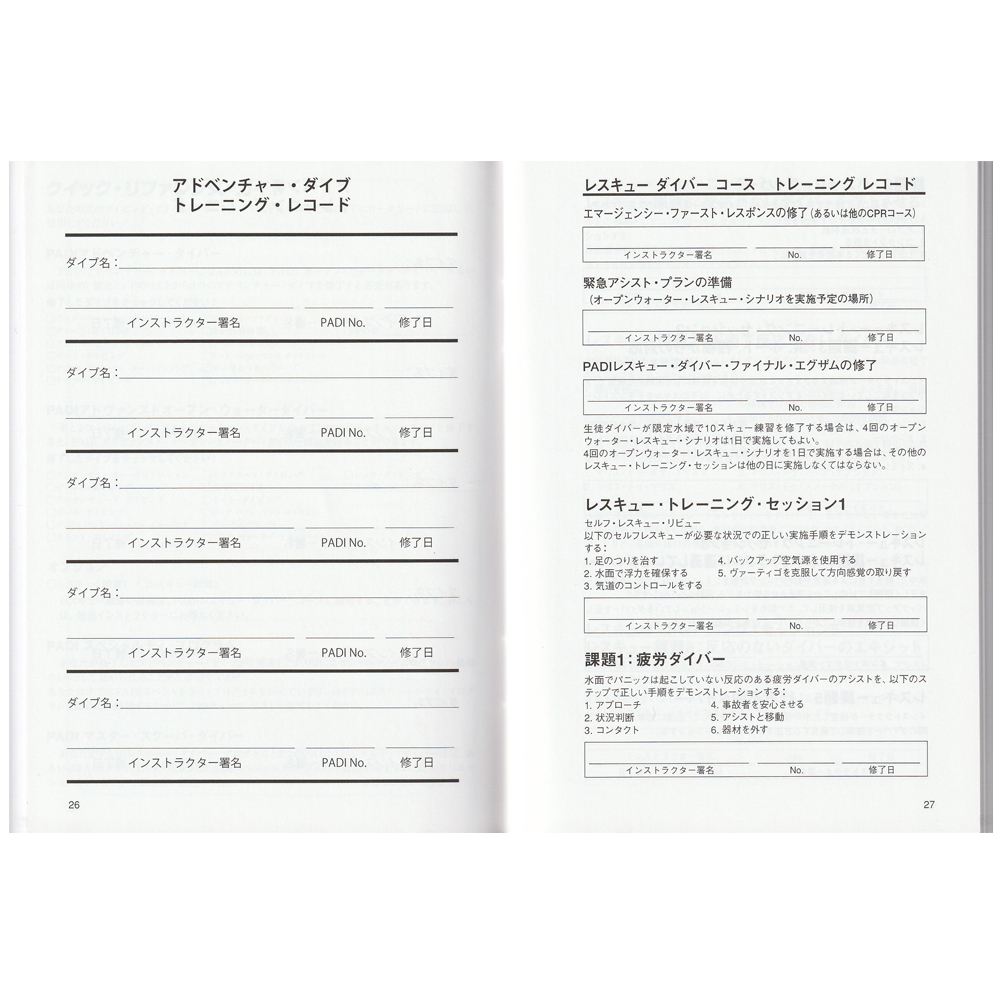 アドベンチャー・ダイブ
トレーニング・レコード
ダイブ名：
インストラクター署名 PADI No. 修了日
ダイブ名：
インストラクター署名 PADI No. 修了日
ダイブ名：
インストラクター署名 PADI No. 修了日
ダイブ名：
インストラクター署名 PADI No. 修了日
ダイブ名：
インストラクター署名 PADI No. 修了日
26
レスキュー ダイバー コース トレーニング レコード
エマージェンシー・ファースト・レスポンスの修了（あるいは他のCPRコース）
インストラクター署名 No. 修了日
緊急アシスト・プランの準備
（オープンウォーター・レスキュー・シナリオを実施予定の場所）
インストラクター署名 No. 修了日
PADIレスキュー・ダイバー・ファイナル・エグザムの修了
インストラクター署名 No. 修了日
生徒ダイバーが限定水域で10スキュー練習を修了する場合は、4回のオープン
ウォーター・レスキュー・シナリオは1日で実施してもよい。
4回のオープンウォーター・レスキュー・シナリオを1日で実施する場合は、その他の
レスキュー・トレーニング・セッションは他の日に実施しなくてはならない。
レスキュー・トレーニング・セッション1
セルフ・レスキュー・リビュー
以下のセルフレスキューが必要な状況での正しい実施手順をデモンストレーション
する：
1. 足のつりを治す 4. バックアップ空気源を使用する
2. 水面で浮力を確保する 5. ヴァーティゴを克服して方向感覚の取り戻す
3. 気道のコントロールをする
インストラクター署名 No. 修了日
課題1：疲労ダイバー
水面でパニックは起こしていない反応のある疲労ダイバーのアシストを、以下のス
テップで正しい手順をデモンストレーションする：
1. アプローチ 4. 事故者を安心させる
2. 状況判断 5. アシストと移動
3. コンタクト 6. 器材を外す
インストラクター署名 No. 修了日
27